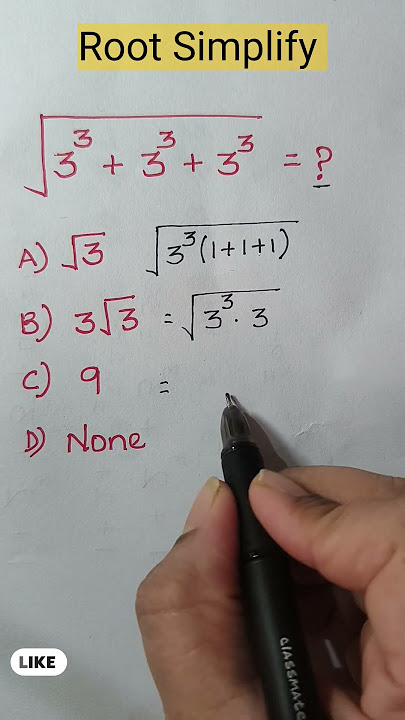 Root Simplify
√(3³ + 3³ + 3³) = ?
A) √3 √(3³(1+1+1))
B) 3√3 = √(3³ · 3)
C) 9 =
D) None
classmate
LIKE